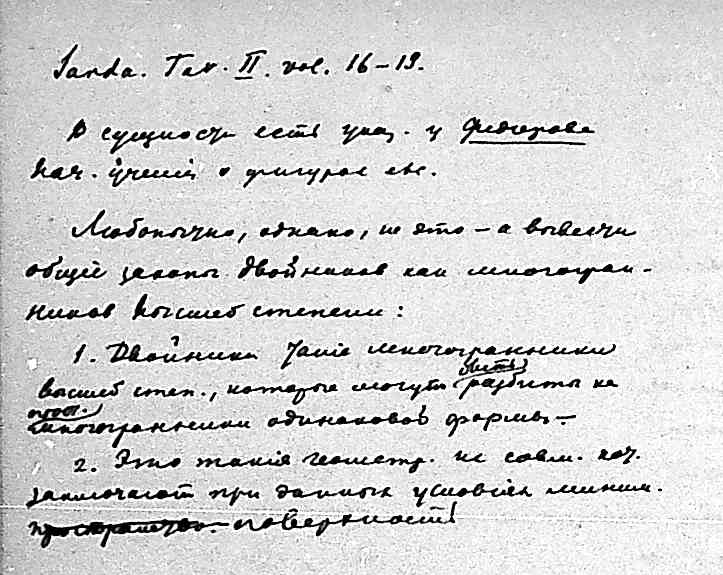 Tav. II. vol. 16–19.
В сущности есть указ. у Федорова
Нач. учения о фигурах etc.
Любопытно, однако, не это – а вывести
общие законы двойников как многогран-
ников высшей степени:
1. Двойники такие многогранники
высшей степ., которые могут быть разбиты на
прост. многогранники одинаковой формы –
2. Это такия геометр. не совм. коч.
заключают при данных условиях миним.
пространство. поверхность